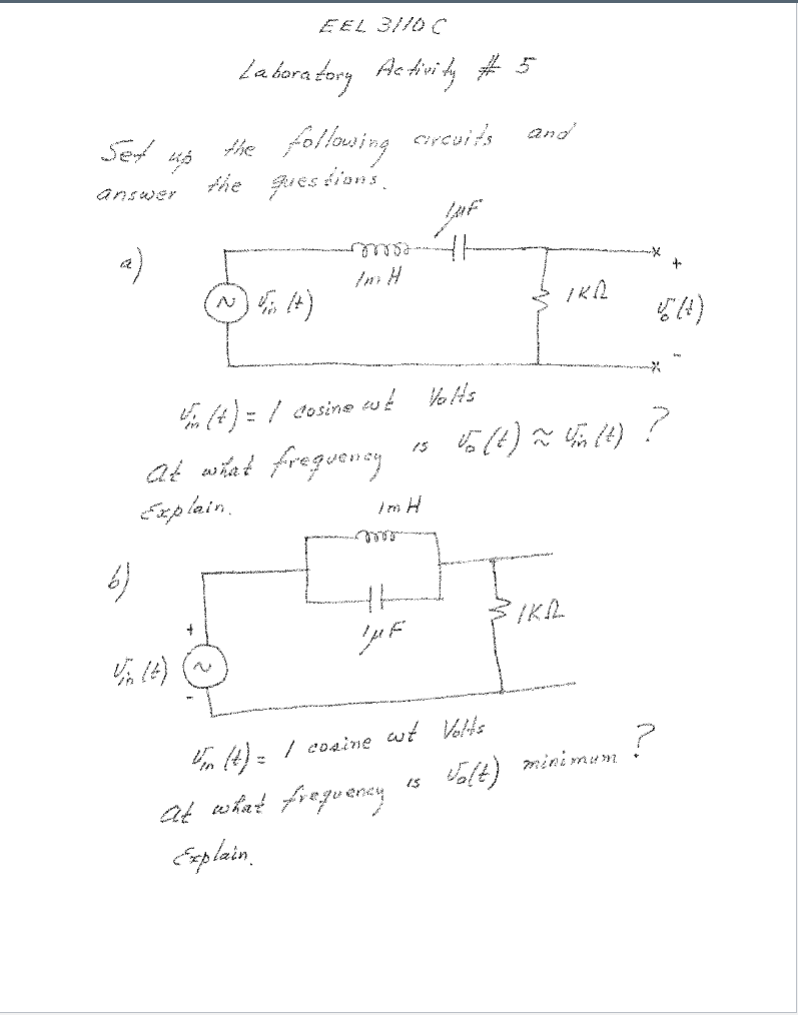 EEL 3110C
Laboratory Activity # 5
Set up the following circuits and
answer the questions.
1µF
a)
1mH
Vin(t)
1KΩ
+
Vo(t)
-
Vin(t) = 1 cosine wt Volts
At what frequency is Vo(t) ≈ Vin(t) ?
Explain.
1mH
b)
1µF
1KΩ
+
Vin(t)
-
Vin(t) = 1 cosine wt Volts
At what frequency is Vo(t) minimum ?
Explain.